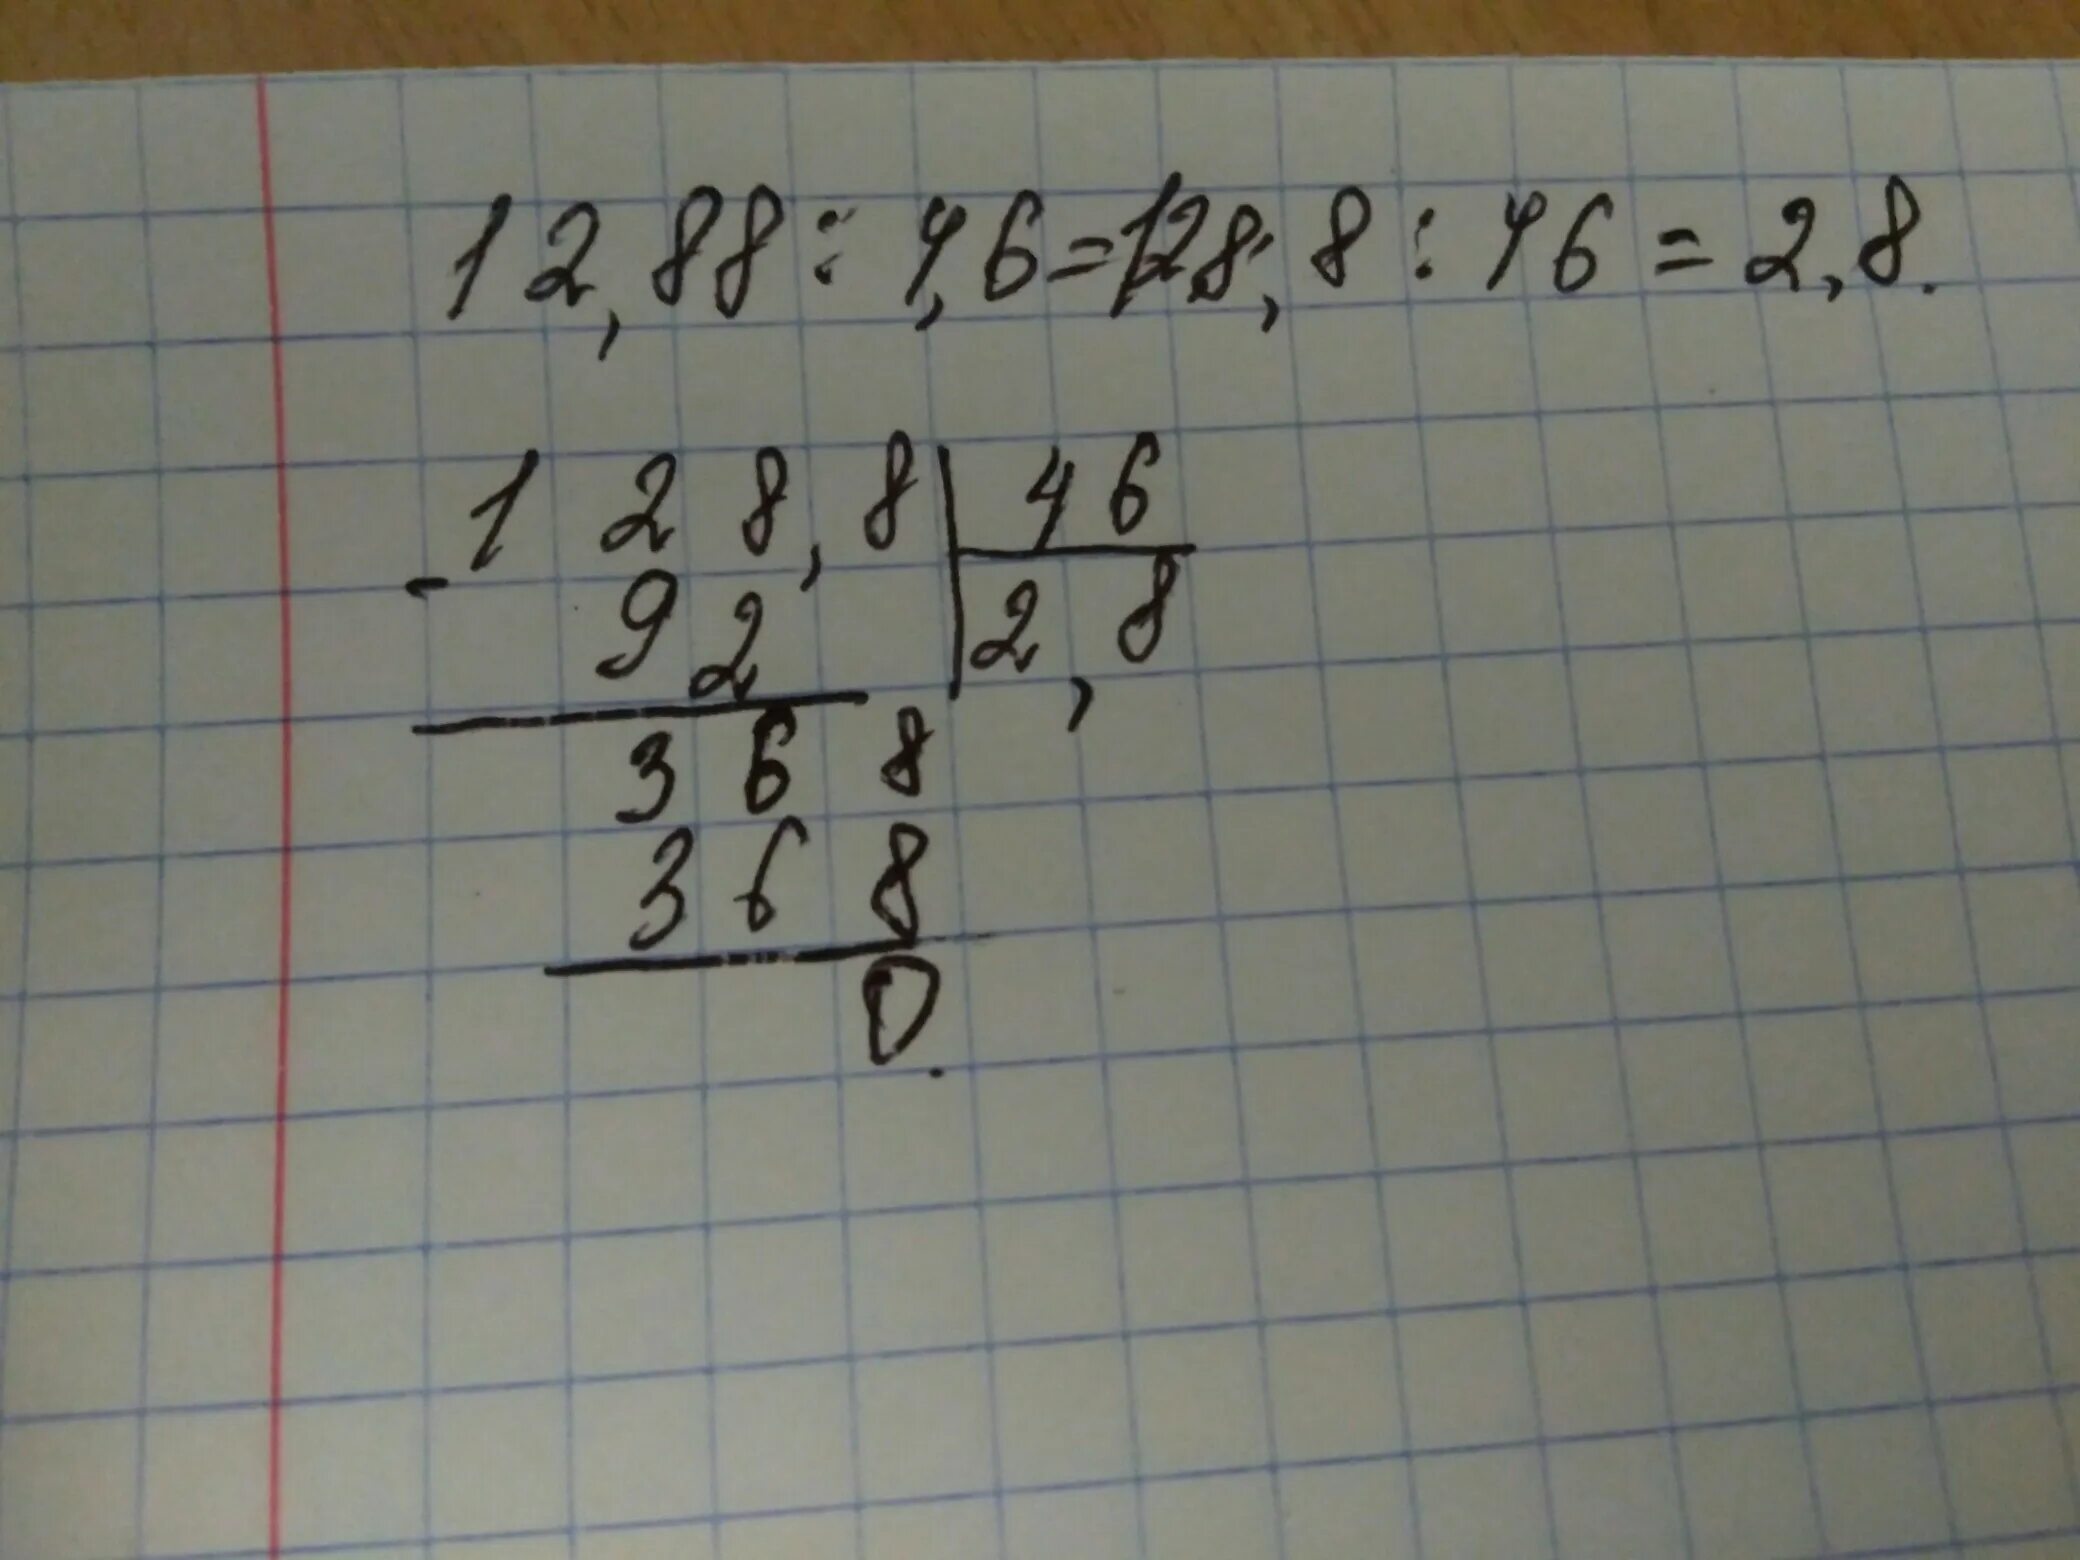 12,88 : 4,6 = 128,8 : 46 = 2,8.
128,8 | 46
- 92 | 2,8
368
368
0.